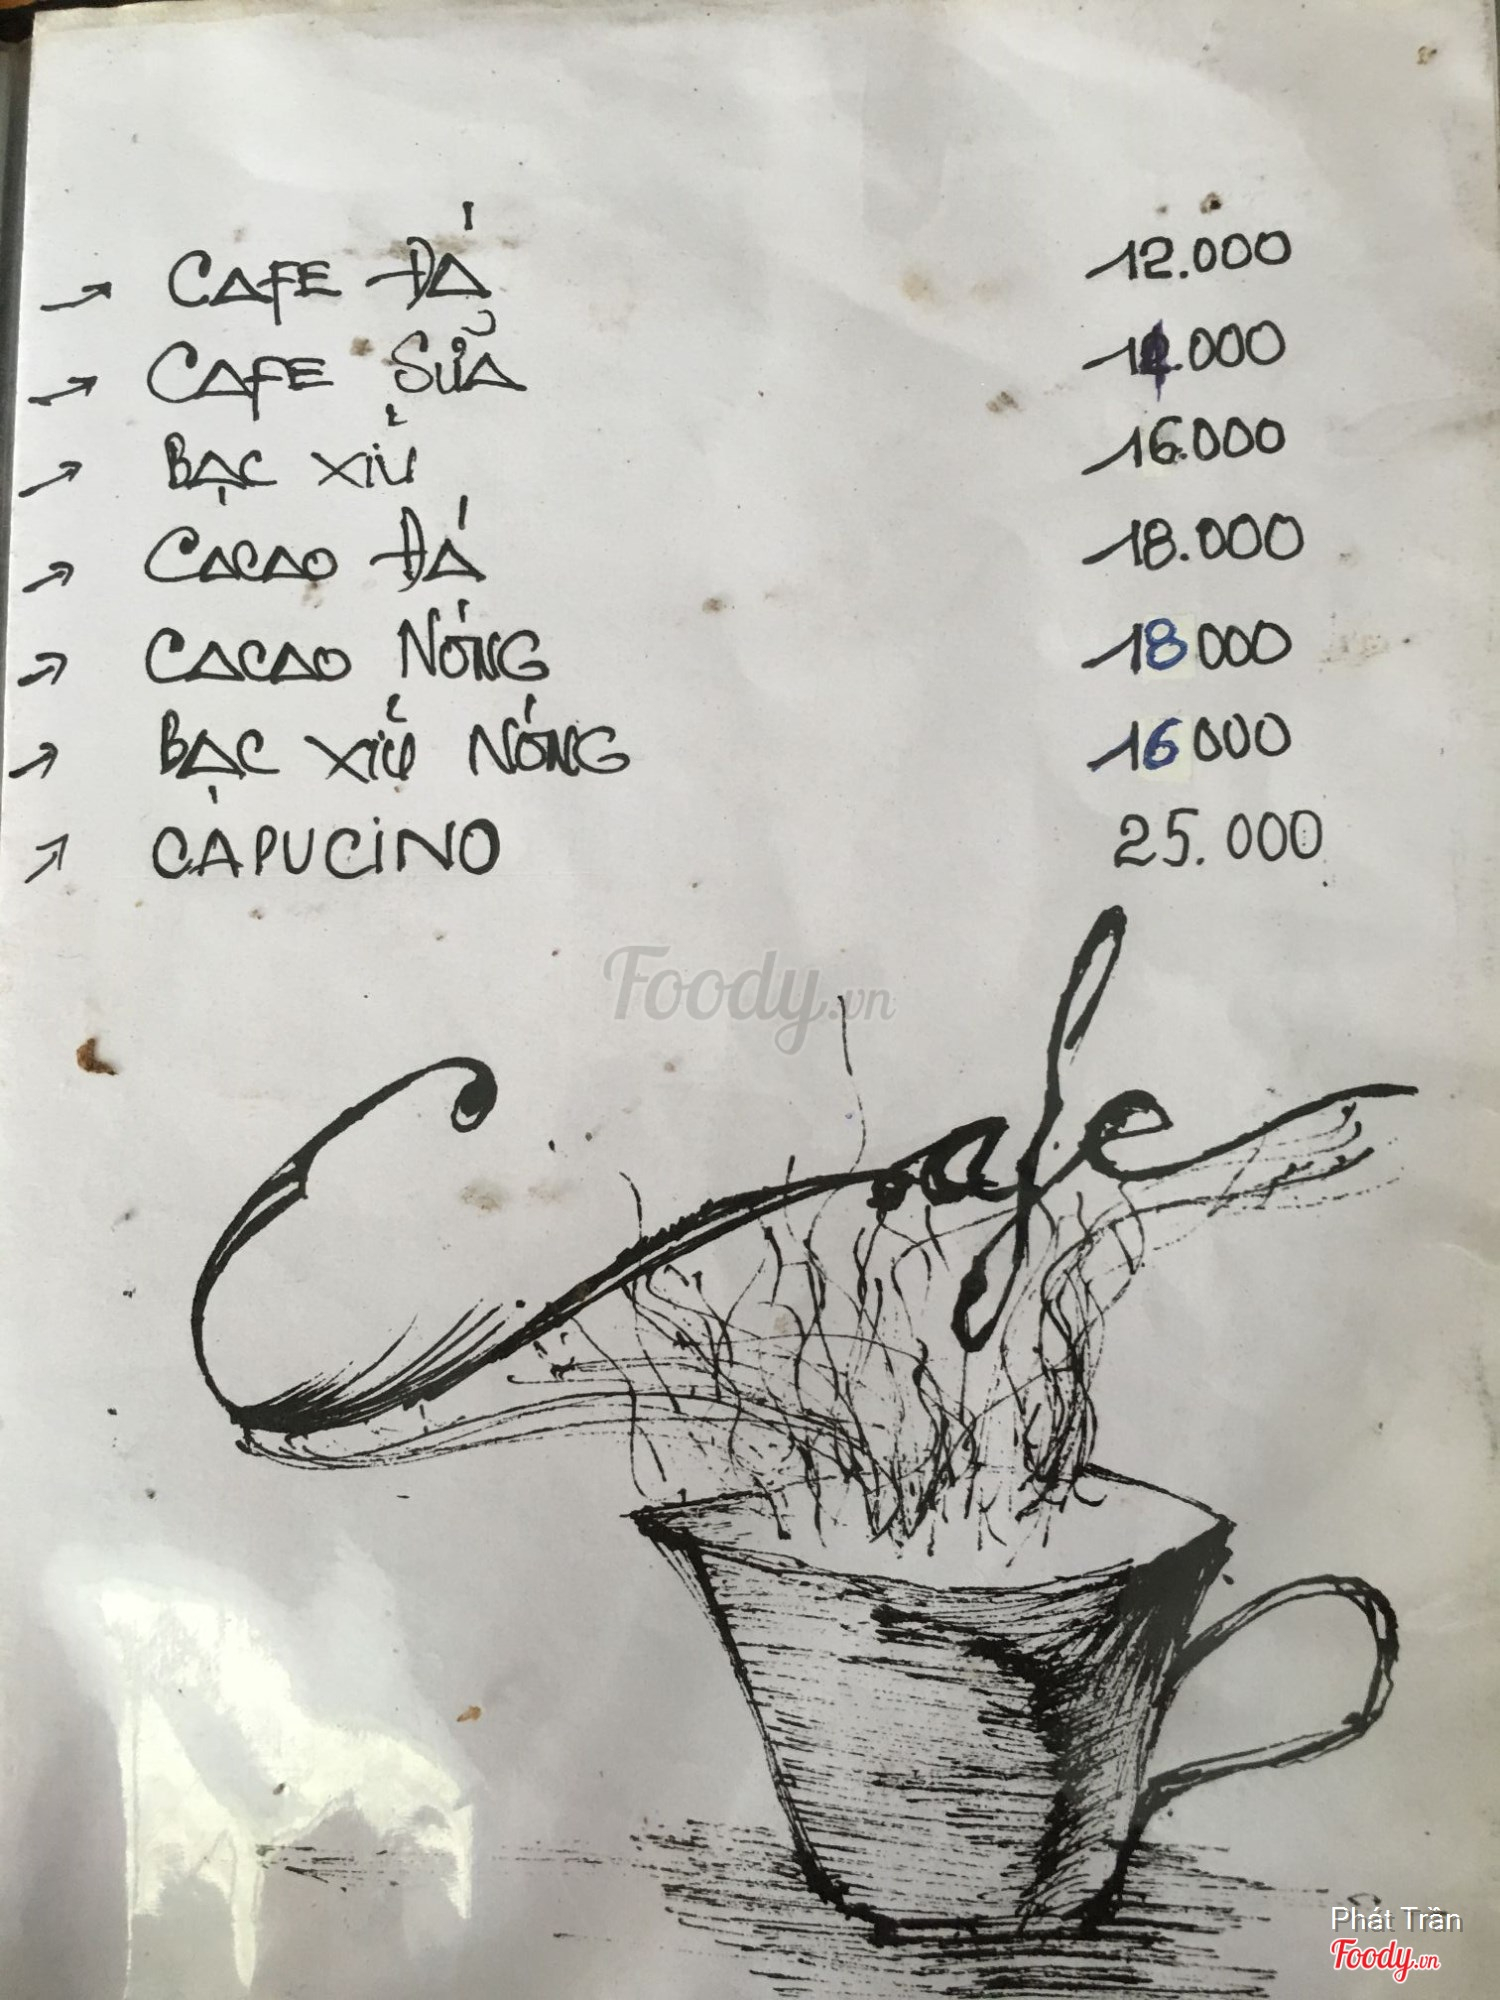 CAFE ĐÁ 12.000
CAFE SỮA 14.000
BẠC XỈU 16.000
CACAO ĐÁ 18.000
CACAO NÓNG 18000
BẠC XỈU NÓNG 16000
CAPUCINO 25.000
Foody.vn
Cafe
Phát Trần
Foody.vn